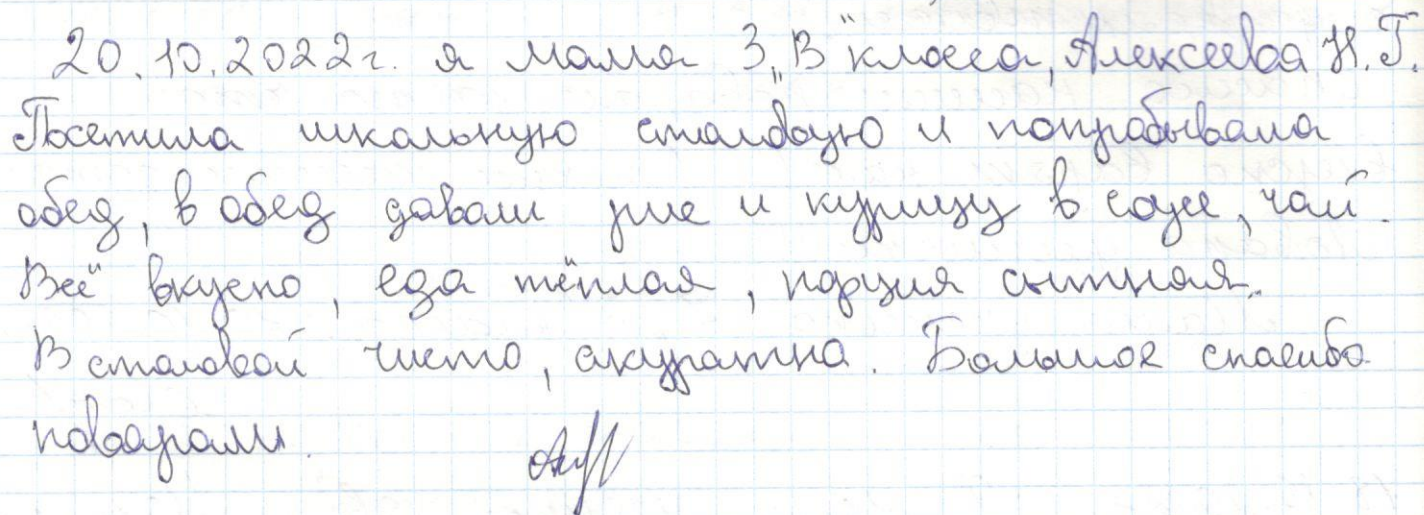 20.10.2022г. я мама 3 „В" класса, Алексеева Н.Г.
Посетила школьную столовую и попробывала
обед, в обед давали рис и курицу в соусе, чай.
Всё вкусно, еда тёплая, порция сытная.
В столовой чисто, акуратна. Большое спасибо
поварам.